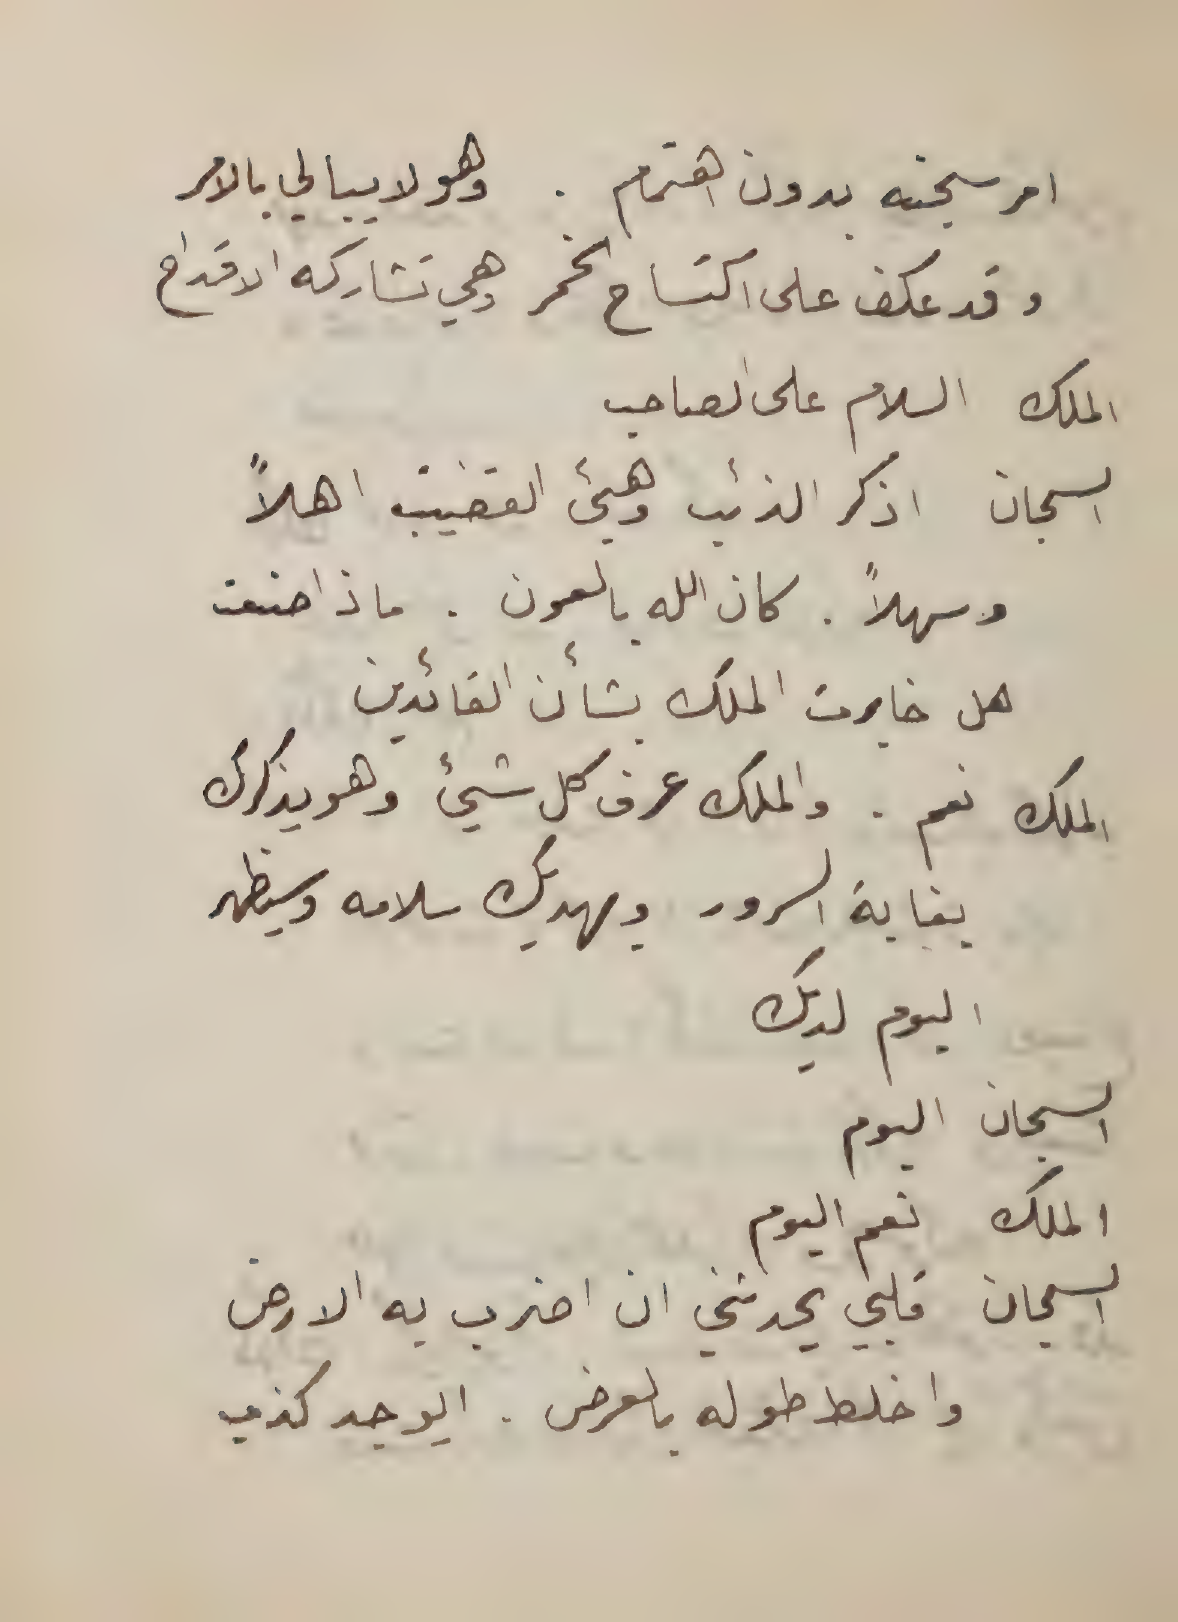 امر سجنه بدون اهتمام . وهو لا يبالي بالامر
وقد عكف على اكتساح الخمر وهي تشاركه الاقداح
الملك السلام على الصاحب
السجان اذكر الذئب وهيئ القضيب اهلاً
وسهلاً . كان الله بالعون . ماذا صنعت
هل خابرت الملك بشأن القائدين
الملك نعم . والملك عرف كل شيئ وهو يذكرك
بغاية السرور ويهديك سلامه وسيظهر
اليوم لديك
السجان اليوم
الملك نعم اليوم
السجان قلبي يحدثني ان اضرب به الارض
واخلط طوله بالعرض . ايوجد كذب